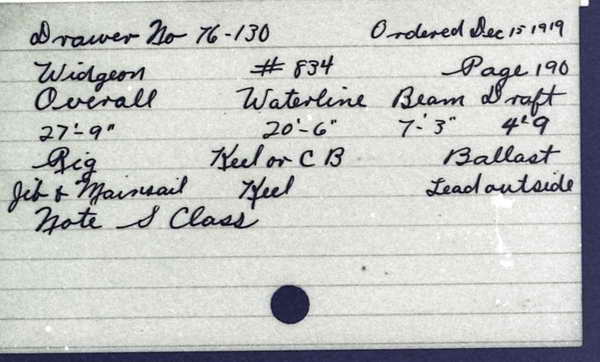 Drawer No 76-130 Ordered Dec 15 1919
Widgeon # 834 Page 190
Overall Waterline Beam Draft
27'-9" 20'-6" 7'-3" 4'9
Rig Keel or C B Ballast
Jib & Mainsail Keel Lead outside
Note S Class